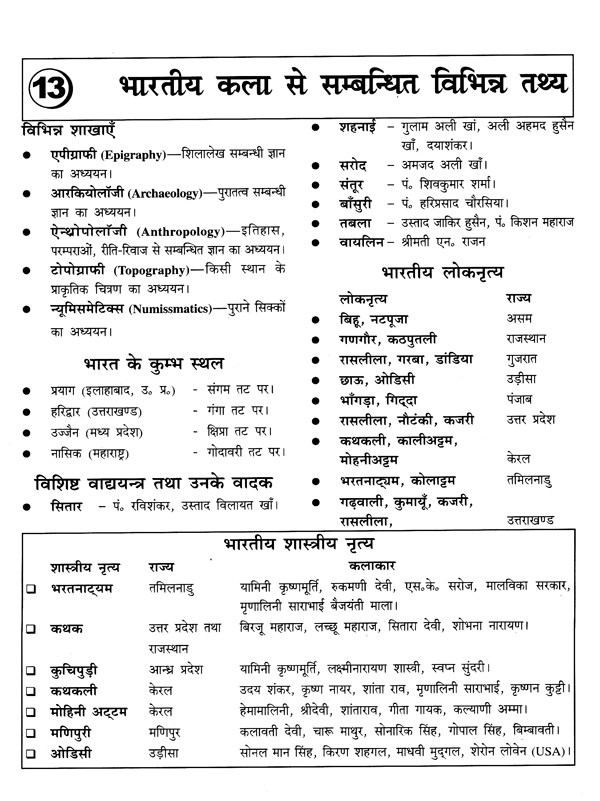 13 भारतीय कला से सम्बन्धित विभिन्न तथ्य
विभिन्न शाखाएँ
● एपीग्राफी (Epigraphy)—शिलालेख सम्बन्धी ज्ञान
का अध्ययन।
● आरकियोलॉजी (Archaeology)—पुरातत्व सम्बन्धी
ज्ञान का अध्ययन।
● ऐन्थ्रोपोलॉजी (Anthropology)—इतिहास,
परम्पराओं, रीति-रिवाज से सम्बन्धित ज्ञान का अध्ययन।
● टोपोग्राफी (Topography)—किसी स्थान के
प्राकृतिक चित्रण का अध्ययन।
● न्यूमिसमेटिक्स (Numissmatics)—पुराने सिक्कों
का अध्ययन।
भारत के कुम्भ स्थल
● प्रयाग (इलाहाबाद, उ० प्र०) - संगम तट पर।
● हरिद्वार (उत्तराखण्ड) - गंगा तट पर।
● उज्जैन (मध्य प्रदेश) - क्षिप्रा तट पर।
● नासिक (महाराष्ट्र) - गोदावरी तट पर।
विशिष्ट वाद्ययन्त्र तथा उनके वादक
● सितार – पं. रविशंकर, उस्ताद विलायत खाँ।
● शहनाई – गुलाम अली खां, अली अहमद हुसैन
खाँ, दयाशंकर।
● सरोद – अमजद अली खाँ।
● संतूर – पं. शिवकुमार शर्मा।
● बाँसुरी – पं. हरिप्रसाद चौरसिया।
● तबला – उस्ताद जाकिर हुसैन, पं. किशन महाराज
● वायलिन – श्रीमती एन. राजन
भारतीय लोकनृत्य
लोकनृत्य राज्य
● बिहू, नटपूजा असम
● गणगौर, कठपुतली राजस्थान
● रासलीला, गरबा, डांडिया गुजरात
● छाऊ, ओडिसी उड़ीसा
● भाँगड़ा, गिद्दा पंजाब
● रासलीला, नौटंकी, कजरी उत्तर प्रदेश
● कथकली, कालीअट्टम,
मोहनीअट्टम केरल
● भरतनाट्यम, कोलाट्टम तमिलनाडु
● गढ़वाली, कुमायूँ, कजरी,
रासलीला, उत्तराखण्ड
भारतीय शास्त्रीय नृत्य
शास्त्रीय नृत्य राज्य कलाकार
❑ भरतनाट्यम तमिलनाडु यामिनी कृष्णमूर्ति, रुकमणी देवी, एस.के. सरोज, मालविका सरकार,
मृणालिनी साराभाई बैजयंती माला।
❑ कथक उत्तर प्रदेश तथा बिरजू महाराज, लच्छू महाराज, सितारा देवी, शोभना नारायण।
राजस्थान
❑ कुचिपुड़ी आन्ध्र प्रदेश यामिनी कृष्णमूर्ति, लक्ष्मीनारायण शास्त्री, स्वप्न सुंदरी।
❑ कथकली केरल उदय शंकर, कृष्ण नायर, शांता राव, मृणालिनी साराभाई, कृष्णन कुट्टी।
❑ मोहिनी अट्टम केरल हेमामालिनी, श्रीदेवी, शांताराव, गीता गायक, कल्याणी अम्मा।
❑ मणिपुरी मणिपुर कलावती देवी, चारू माथुर, सोनारिक सिंह, गोपाल सिंह, बिम्बावती।
❑ ओडिसी उड़ीसा सोनल मान सिंह, किरण शहगल, माधवी मुद्गल, शेरोन लोवेन (USA)।